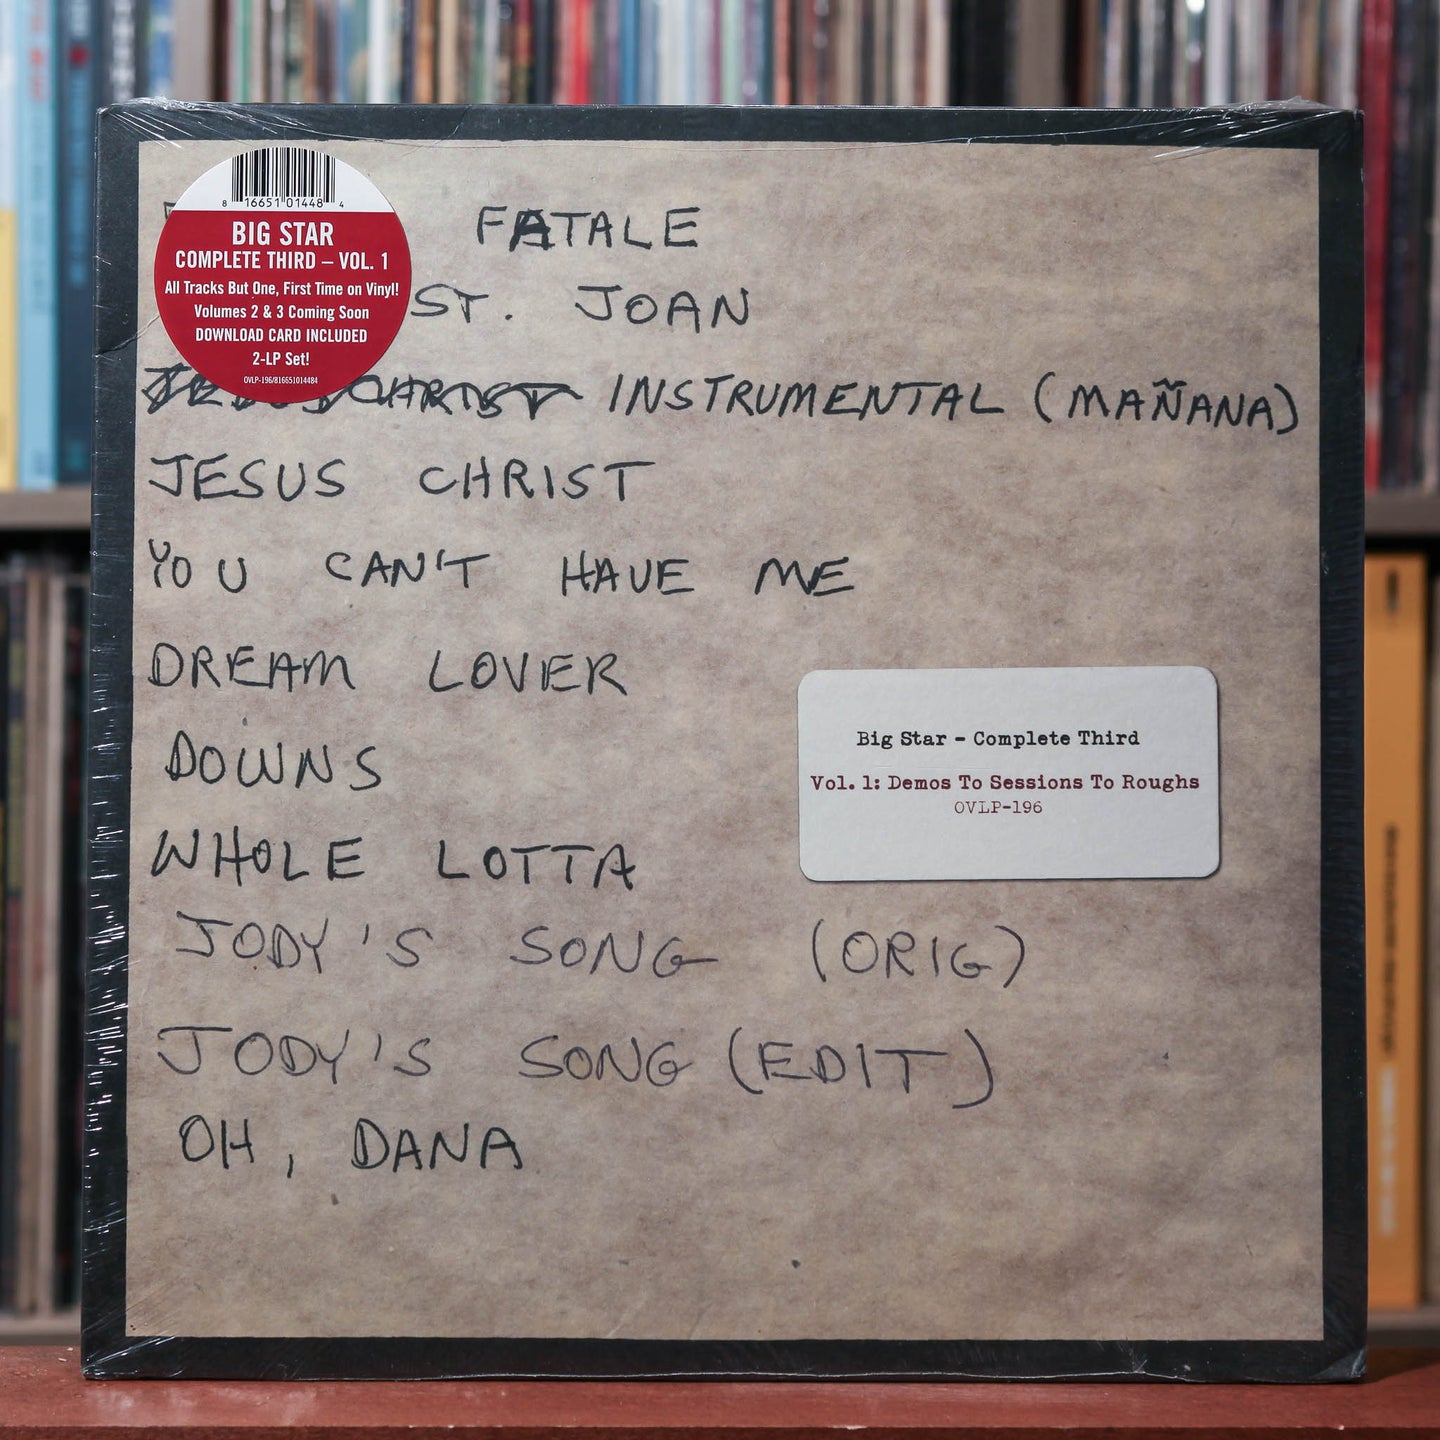 8 16651 01448 4
BIG STAR
COMPLETE THIRD – VOL. 1
All Tracks But One, First Time on Vinyl!
Volumes 2 & 3 Coming Soon
DOWNLOAD CARD INCLUDED
2-LP Set!
OVLP-196/816651014484
FATALE
ST. JOAN
CHRIST INSTRUMENTAL (MAÑANA)
JESUS CHRIST
YOU CAN'T HAVE ME
DREAM LOVER
DOWNS
WHOLE LOTTA
JODY'S SONG (ORIG)
JODY'S SONG (EDIT)
OH, DANA
Big Star - Complete Third
Vol. 1: Demos To Sessions To Roughs
OVLP-196